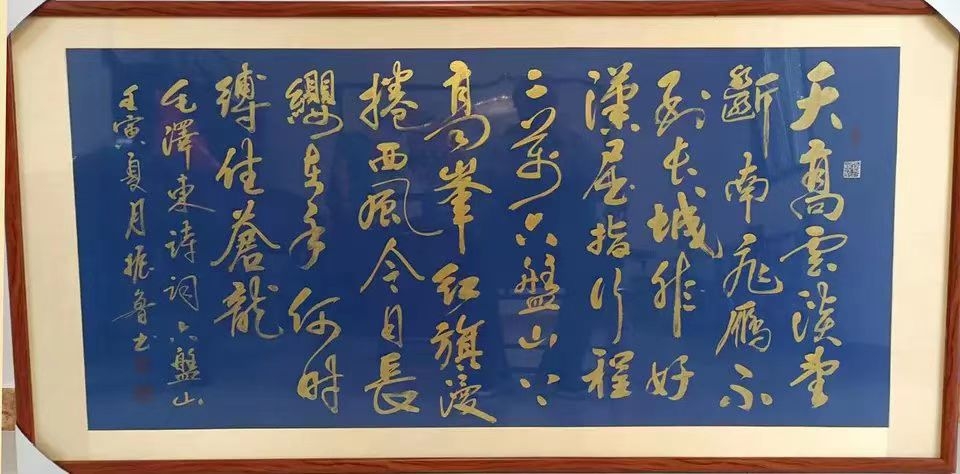 天高雲淡望
斷南飛雁不
到長城非好
漢屈指行程
二萬六盤山上
高峯紅旗漫
捲西風今日長
纓在手何時
縛住蒼龍
毛澤東詩詞六盤山
壬寅夏月振魯書